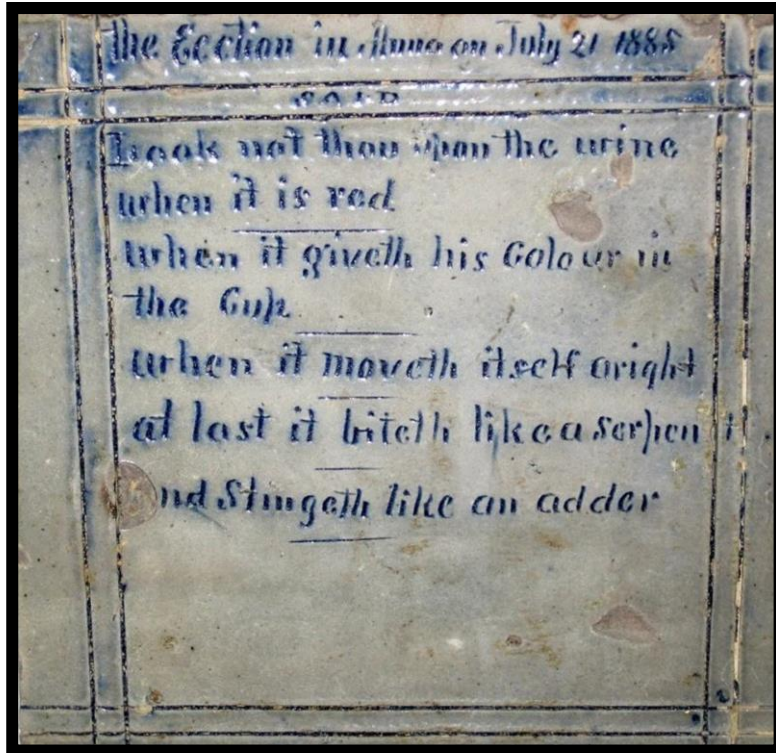 the Eection in Anna on July 21 1885
Look not thou upon the wine
when it is red
when it giveth his Colour in
the Cup
when it moveth itself aright
at last it biteth like a serpent
and Stingeth like an adder